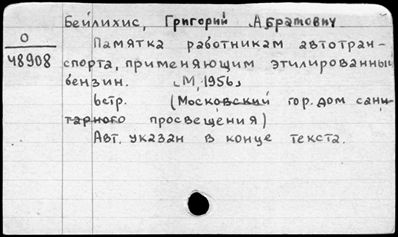 Бейлихис, Григорий Абрамович
О
48908
Памятка работникам автотран-
спорта, применяющим этилированный
бензин. [М, 1956]
6стр. (Московский гор. дом сани-
тарного просвещения)
Авт. указан в конце текста.